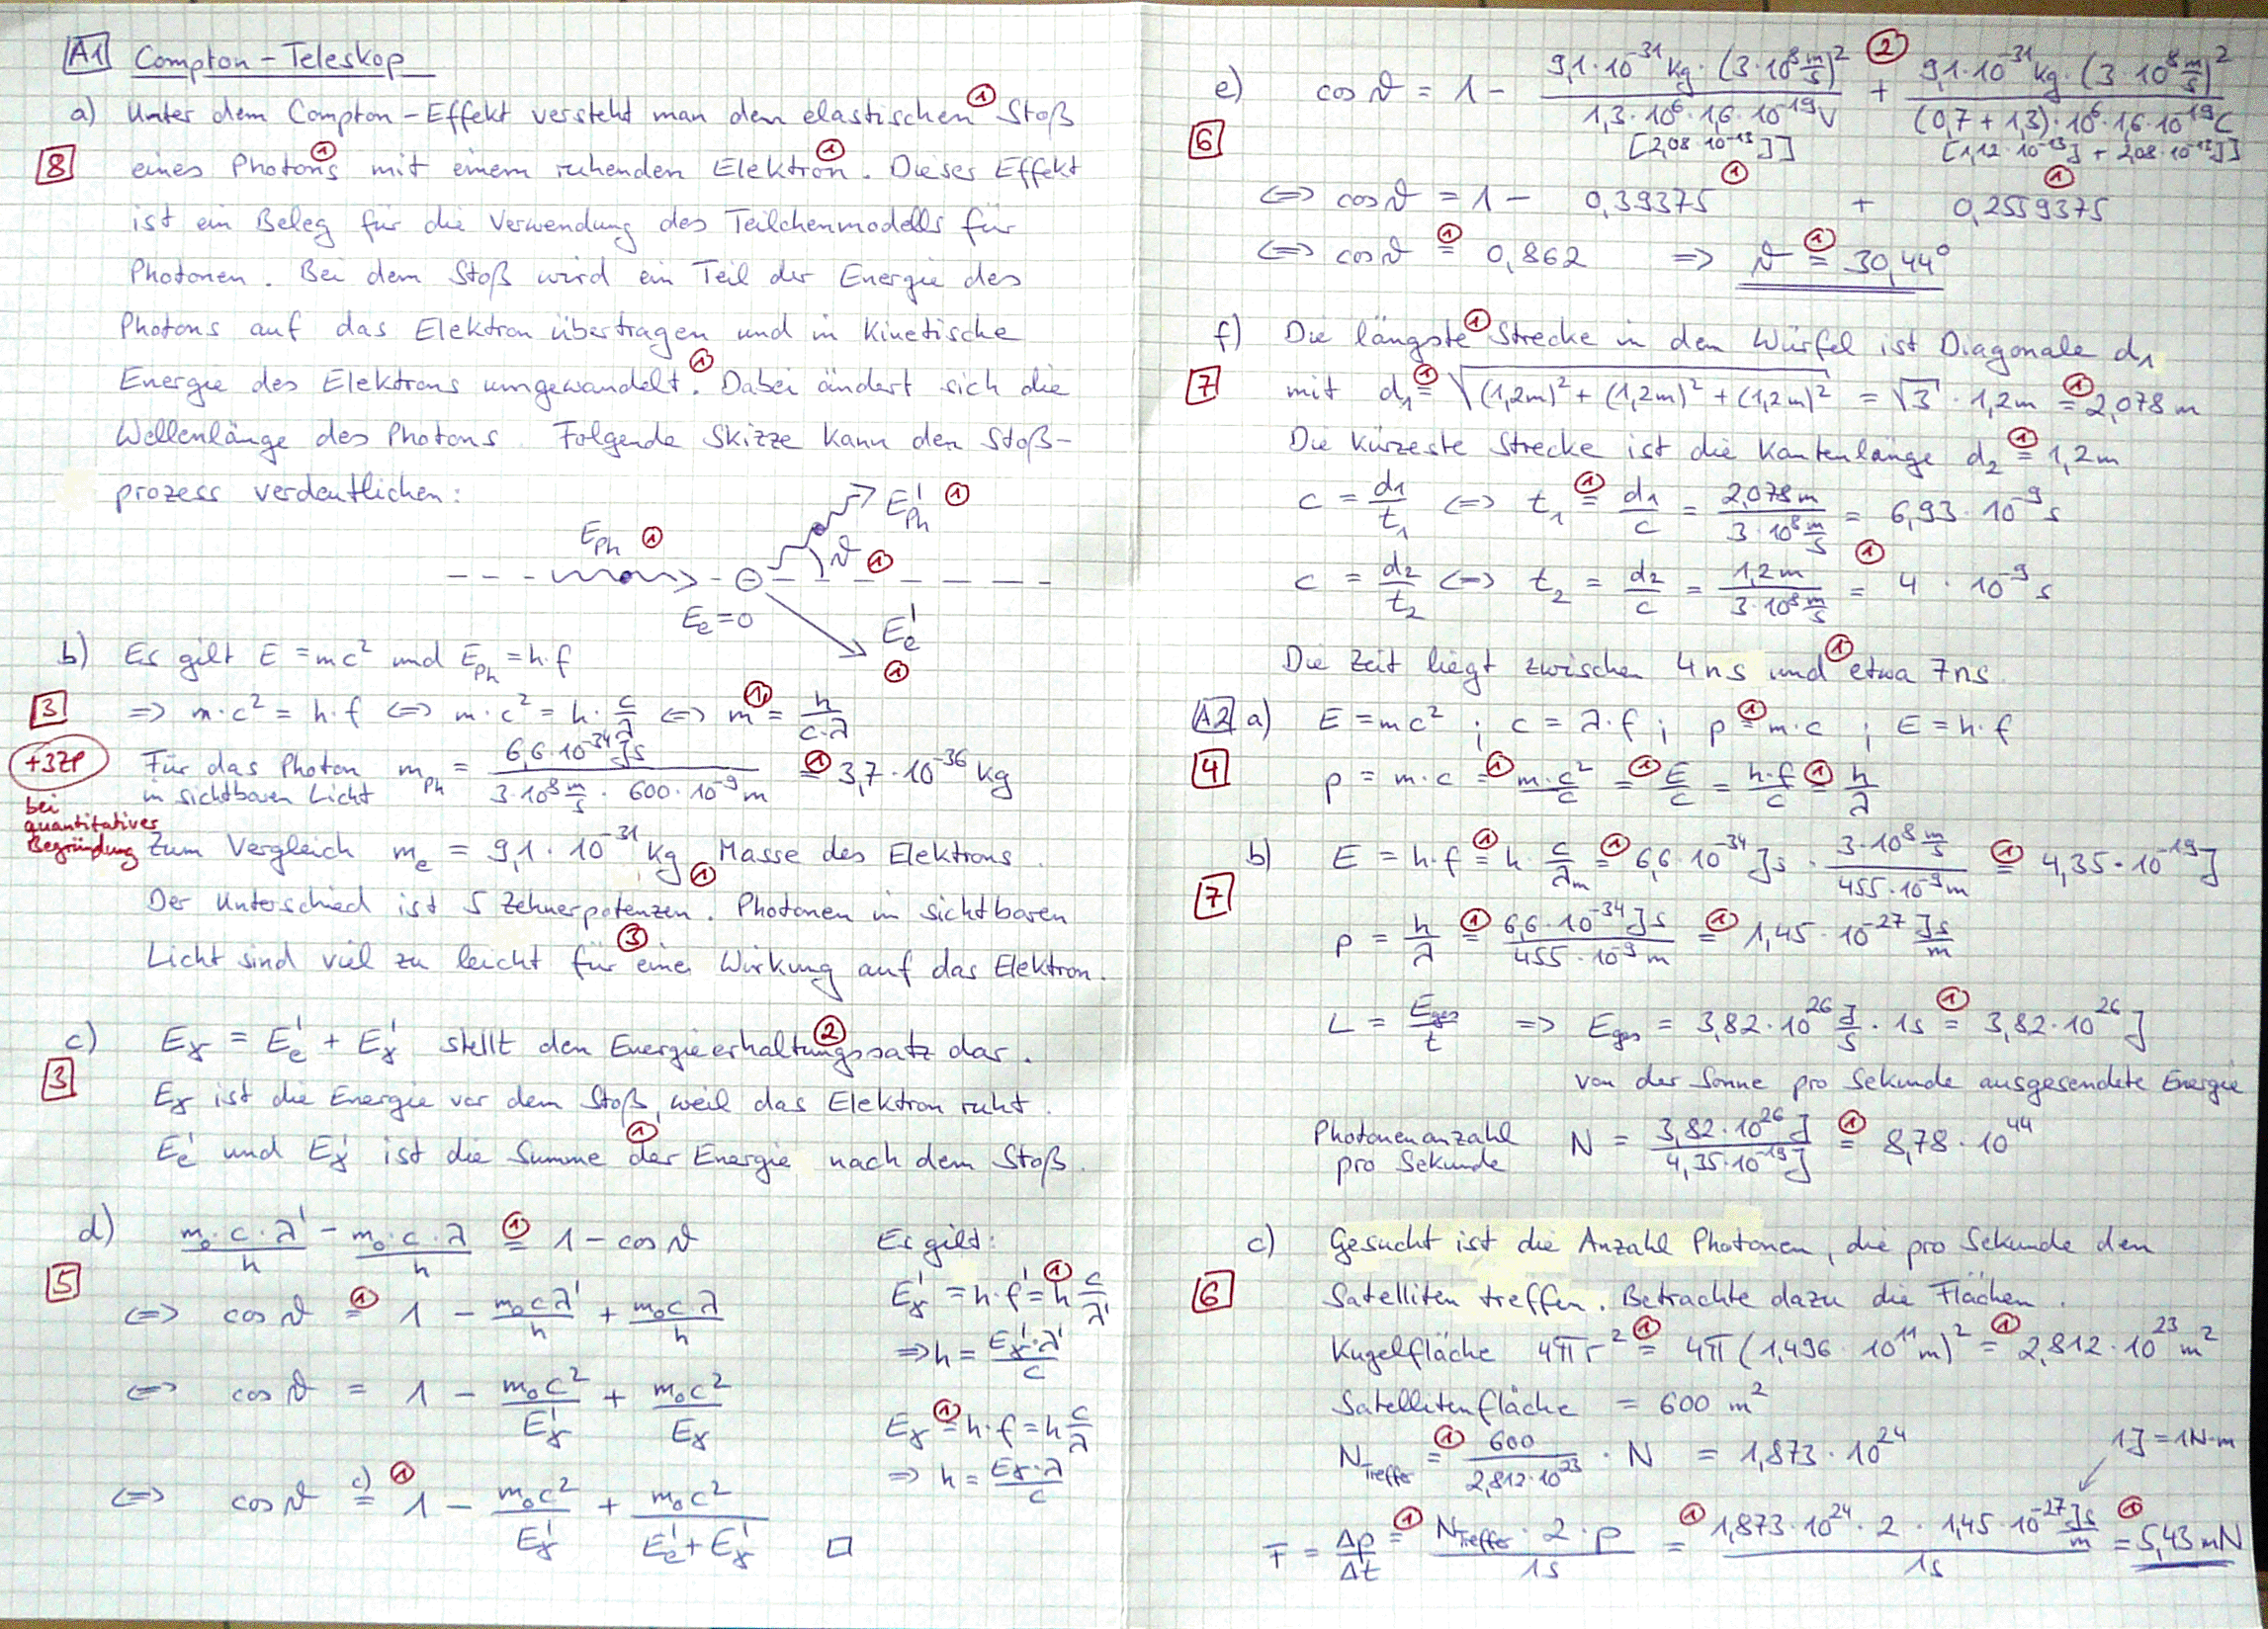 A1 Compton-Teleskop
a) Unter dem Compton-Effekt versteht man den elastischen ① Stoß
8 eines Photons ① mit einem ruhenden Elektron ①. Dieser Effekt
ist ein Beleg für die Verwendung des Teilchenmodells für
Photonen. Bei dem Stoß wird ein Teil der Energie des
Photons auf das Elektron übertragen und in kinetische
Energie des Elektrons umgewandelt. ① Dabei ändert sich die
Wellenlänge des Photons. Folgende Skizze kann den Stoß-
prozess verdeutlichen:
E'Ph ①
EPh ① ϑ ①
Ee=0 E'e ①
b) Es gilt E = mc² und EPh = h·f
3 ⇒ m·c² = h·f ⇔ m·c² = h·c/λ ⇔ m ①= h/(c·λ)
+3ZP Für das Photon mPh = 6,6·10⁻³⁴Js / (3·10⁸ m/s · 600·10⁻⁹m) ①= 3,7·10⁻³⁶ kg
in sichtbaren Licht
bei
quantitativer
Begründung Zum Vergleich me = 9,1·10⁻³¹ kg ① Masse des Elektrons.
Der Unterschied ist 5 Zehnerpotenzen. Photonen in sichtbaren
Licht sind viel zu leicht für ③ eine Wirkung auf das Elektron.
c) Eγ = E'e + E'γ stellt den Energieerhaltungssatz ② dar.
3 Eγ ist die Energie vor dem Stoß, weil das Elektron ruht.
E'e und E'γ ist die Summe ① der Energie nach dem Stoß.
d) m₀·c·λ'/h − m₀·c·λ/h ①= 1 − cos ϑ
5 ⇔ cos ϑ ①= 1 − m₀cλ'/h + m₀cλ/h
⇔ cos ϑ = 1 − m₀c²/E'γ + m₀c²/Eγ
⇔ cos ϑ c)= ① 1 − m₀c²/E'γ + m₀c²/(E'e + E'γ) □
Es gilt:
E'γ = h·f' ①= h c/λ'
⇒ h = E'γ·λ'/c
Eγ ①= h·f = h c/λ
⇒ h = Eγ·λ/c
e) cos ϑ = 1 − 9,1·10⁻³¹kg·(3·10⁸ m/s)² / (1,3·10⁶·1,6·10⁻¹⁹V) ② + 9,1·10⁻³¹kg·(3·10⁸ m/s)² / ((0,7+1,3)·10⁶·1,6·10⁻¹⁹C)
6 [2,08·10⁻¹³J] [1,12·10⁻¹³J + 2,08·10⁻¹³J]
⇔ cos ϑ = 1 − 0,39375 ① + 0,2559375 ①
⇔ cos ϑ ①= 0,862 ⇒ ϑ ①= 30,44°
f) Die längste ① Strecke in dem Würfel ist Diagonale d₁
7 mit d₁ ①= √((1,2m)² + (1,2m)² + (1,2m)²) = √3 · 1,2m ①= 2,078 m
Die kürzeste Strecke ist die Kantenlänge d₂ ①= 1,2m
c = d₁/t₁ ⇔ t₁ ①= d₁/c = 2,078m / (3·10⁸ m/s) = 6,93·10⁻⁹s
c = d₂/t₂ ⇔ t₂ = d₂/c = 1,2m / (3·10⁸ m/s) ①= 4·10⁻⁹ s
Die Zeit liegt zwischen 4ns und ① etwa 7ns.
A2 a) E = mc² ; c = λ·f ; p ①= m·c ; E = h·f
4 p = m·c ①= m·c²/c ①= E/c = h·f/c ①= h/λ
b) E = h·f ①= h·c/λm ①= 6,6·10⁻³⁴Js · 3·10⁸ m/s / (455·10⁻⁹m) ①= 4,35·10⁻¹⁹J
7 p = h/λ ①= 6,6·10⁻³⁴Js / (455·10⁻⁹m) ①= 1,45·10⁻²⁷ Js/m
L = Eges/t ⇒ Eges = 3,82·10²⁶ J/s · 1s ①= 3,82·10²⁶J
von der Sonne pro Sekunde ausgesendete Energie
Photonenanzahl N = 3,82·10²⁶J / (4,35·10⁻¹⁹J) ①= 8,78·10⁴⁴
pro Sekunde
c) Gesucht ist die Anzahl Photonen, die pro Sekunde den
6 Satelliten treffen. Betrachte dazu die Flächen.
Kugelfläche 4πr² ①= 4π(1,496·10¹¹m)² ①= 2,812·10²³m²
Satellitenfläche = 600 m²
NTreffer ①= 600/(2,812·10²³) · N = 1,873·10²⁴ 1J = 1N·m
F = Δp/Δt ①= NTreffer·2·p / 1s ①= 1,873·10²⁴·2·1,45·10⁻²⁷ Js/m / 1s ①= 5,43 mN